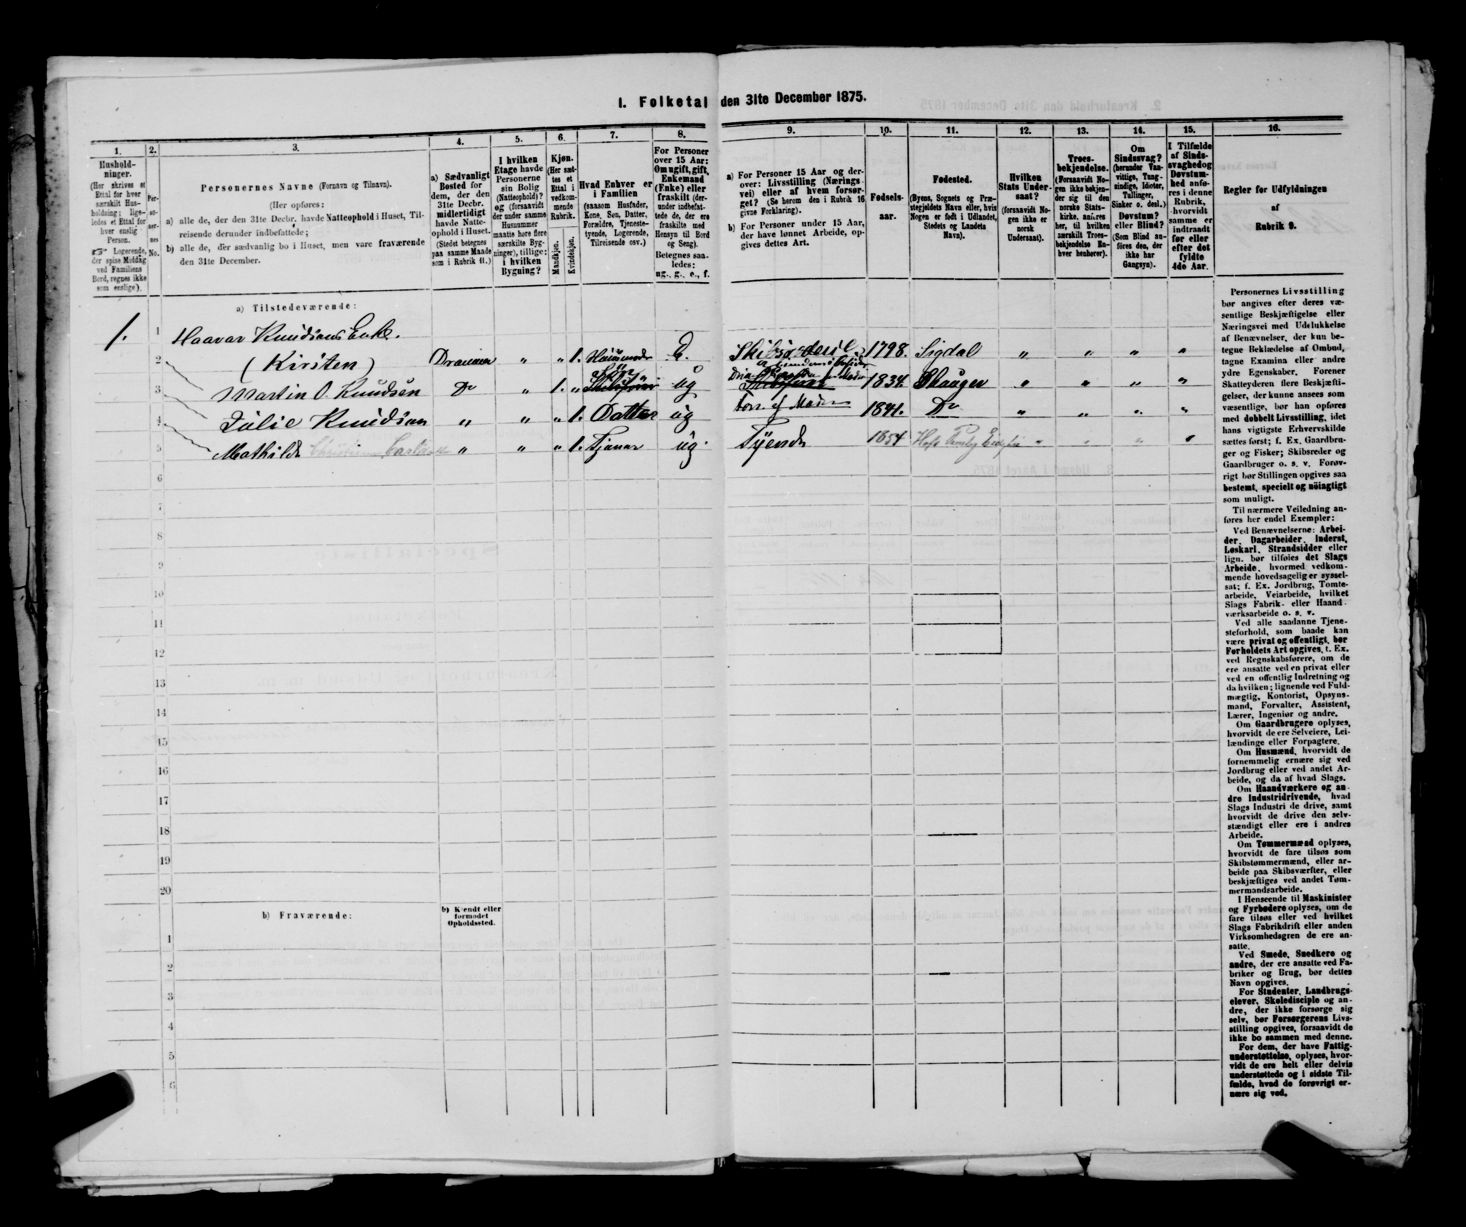 1. Folketal den 31te December 1875.
1.
Hushold-
ninger.
(Her skrives et
Ettal for hver
særskilt Hus-
holdning; lige-
ledes et Ettal for
hver enslig
Person.
Logerende,
der spise Middag
ved Familiens
Bord, regnes ikke
som enslige).
2.
Per-
so-
ner-
nes
No.
3.
Personernes Navne (Fornavn og Tilnavn).
(Her opføres:
a) alle de, der den 31te Decbr. havde Natteophold i Huset, Til-
reisende derunder indbefattede;
b) alle de, der sædvanlig bo i Huset, men vare fraværende
den 31te December.
4.
a) Sædvanligt
Bosted for
dem, der den
31te Decbr.
midlertidigt
havde Natte-
ophold i Huset.
(Stedet betegnes
paa samme Maade
som i Rubrik 11.)
5.
I hvilken
Etage havde
Personerne
sin Bolig
(Natteophold)?
og (forsaavidt
der under samme
Husnummer
maatte høre flere
særskilte Byg-
ninger), tillige:
i hvilken
Bygning?
6.
Kjøn.
(Her sæt-
tes et
Ettal i
vedkom-
mende
Rubrik.
Mandkjøn.
Kvindekjøn.
7.
Hvad Enhver er
i Familien
(saasom Husfader,
Kone, Søn, Datter,
Forældre, Tjeneste-
tyende, Logerende,
Tilreisende osv.)
8.
For Personer
over 15 Aar:
Om ugift, gift,
Enkemand
(Enke) eller
fraskilt (der-
under indbefat-
tede de, der ere
fraskilte med
Hensyn til Bord
og Seng).
Betegnes saa-
ledes:
ug., g., e., f.
9.
a) For Personer 15 Aar og der-
over: Livsstilling (Nærings-
vei) eller af hvem forsør-
get? (Se herom den i Rubrik 16
givne Forklaring).
b) For Personer under 15 Aar,
der have lønnet Arbeide, op-
gives dettes Art.
10.
Fødsels-
aar.
11.
Fødested.
(Byens, Sognets og Præ-
stegjeldets Navn eller, hvis
Nogen er født i Udlandet,
Stedets og Landets
Navn).
12.
Hvilken
Stats Under-
saat?
(forsaavidt No-
gen ikke er
norsk
Undersaat).
13.
Troes-
bekjendelse.
(Forsaavidt No-
gen ikke bekjen-
der sig til den
norske Stats-
kirke, anføres
her, til hvilken
særskilt Troes-
bekjendelse En-
hver henhører).
14.
Om
Sindssvag?
(herunder Van-
vittige, Tung-
sindige, Idioter,
Tullinger,
Sinker o. desl.)
Døvstum?
eller Blind?
(Som Blind an-
føres den, der
ikke har
Gangsyn).
15.
I Tilfælde
af Sinds-
svaghed og
Døvstum-
hed anfø-
res i denne
Rubrik,
hvorvidt
samme er
indtraadt
før eller
efter det
fyldte
4de Aar.
16.
Regler for Udfyldningen
af
Rubrik 9.
a) Tilstedeværende:
1.
1 Haavar Knudsens Enke.
2 (Kirsten) Drammen " " 1. Husmoder E. 1798. Sigdal " " " "
Søn
3 Martin O. Knudsen Do " 1. " ug 1834. Skauger " " " "
4 Julie Knudsen " " " 1. Datter ug Fors. af Moder 1841. Do " " " "
5 Mathilde " " " 1. Tjener ug. Tyende 1854 " " " "
6
7
8
9
10
11
12
13
14
15
16
17
18
19
20
b) Fraværende:
b) Kjendt eller
formodet
Opholdssted.
1
2
3
4
5
6
Personernes Livsstilling
bør angives efter deres væ-
sentlige Beskjæftigelse eller
Næringsvei med Udelukkelse
af Benævnelser, der kun be-
tegne Beklædelse af Ombud,
tagne Examina eller andre
ydre Egenskaber. Forener
Skatteyderen flere Beskjæfti-
gelser, der kunne ansees som
væsentlige, bør han opføres
med dobbelt Livsstilling, idet
hans vigtigste Erhvervskilde
sættes først; f. Ex. Gaardbru-
ger og Fisker; Skibsreder og
Gaardbruger o. s. v. Forøv-
rigt bør Stillingen opgives saa
bestemt, specielt og nøiagtigt
som muligt.
Til nærmere Veiledning an-
føres her endel Exempler:
Ved Benævnelserne: Arbei-
der, Dagarbeider, Inderst,
Løskarl, Strandsidder eller
lign. bør tilføies det Slags
Arbeide, hvormed vedkom-
mende hovedsagelig er syssel-
sat; f. Ex. Jordbrug, Tomte-
arbeide, Veiarbeide, hvilket
Slags Fabrik- eller Haand-
værksarbeide o. s. v.
Ved alle saadanne Tjene-
steforhold, som baade kan
være privat og offentligt, bør
Forholdets Art opgives, f. Ex.
ved Regnskabsførere, om de
ere ansatte ved en privat eller
ved en offentlig Indretning og
da hvilken; lignende ved Fuld-
mægtig, Kontorist, Opsyns-
mand, Forvalter, Assistent,
Lærer, Ingeniør og andre.
Om Gaardbrugere oplyses,
hvorvidt de ere Selveiere, Lei-
lændinge eller Forpagtere.
Om Husmænd, hvorvidt de
fornemmelig ernære sig ved
Jordbrug eller ved andet Ar-
beide, og da af hvad Slags.
Om Haandværkere og an-
dre Industridrivende, hvad
Slags Industri de drive, samt
hvorvidt de drive den selv-
stændigt eller ere i andres
Arbeide.
Om Tømmermænd oplyses,
hvorvidt de fare tilsøs som
Skibstømmermænd, eller ar-
beide paa Skibsværfter, eller
beskjæftiges ved andet Tøm-
mermandsarbeide.
I Henseende til Maskinister
og Fyrbødere oplyses, om de
fare tilsøs eller ved hvilket
Slags Fabrikdrift eller anden
Virksomhedsgren de ere an-
satte.
Ved Smede, Snedkere og
andre, der ere ansatte ved Fa-
briker og Brug, bør dettes
Navn opgives.
For Studenter, Landbrugs-
elever, Skoledisciple og an-
dre, der ikke forsørge sig
selv, bør Forsørgerens Livs-
stilling opgives, forsaavidt de
ikke bo sammen med denne.
For dem, der have Fattig-
understøttelse, oplyses, hvor-
vidt de ere helt eller delvis
understøttede og i sidste Til-
fælde, hvad de forøvrigt er-
nære sig ved.